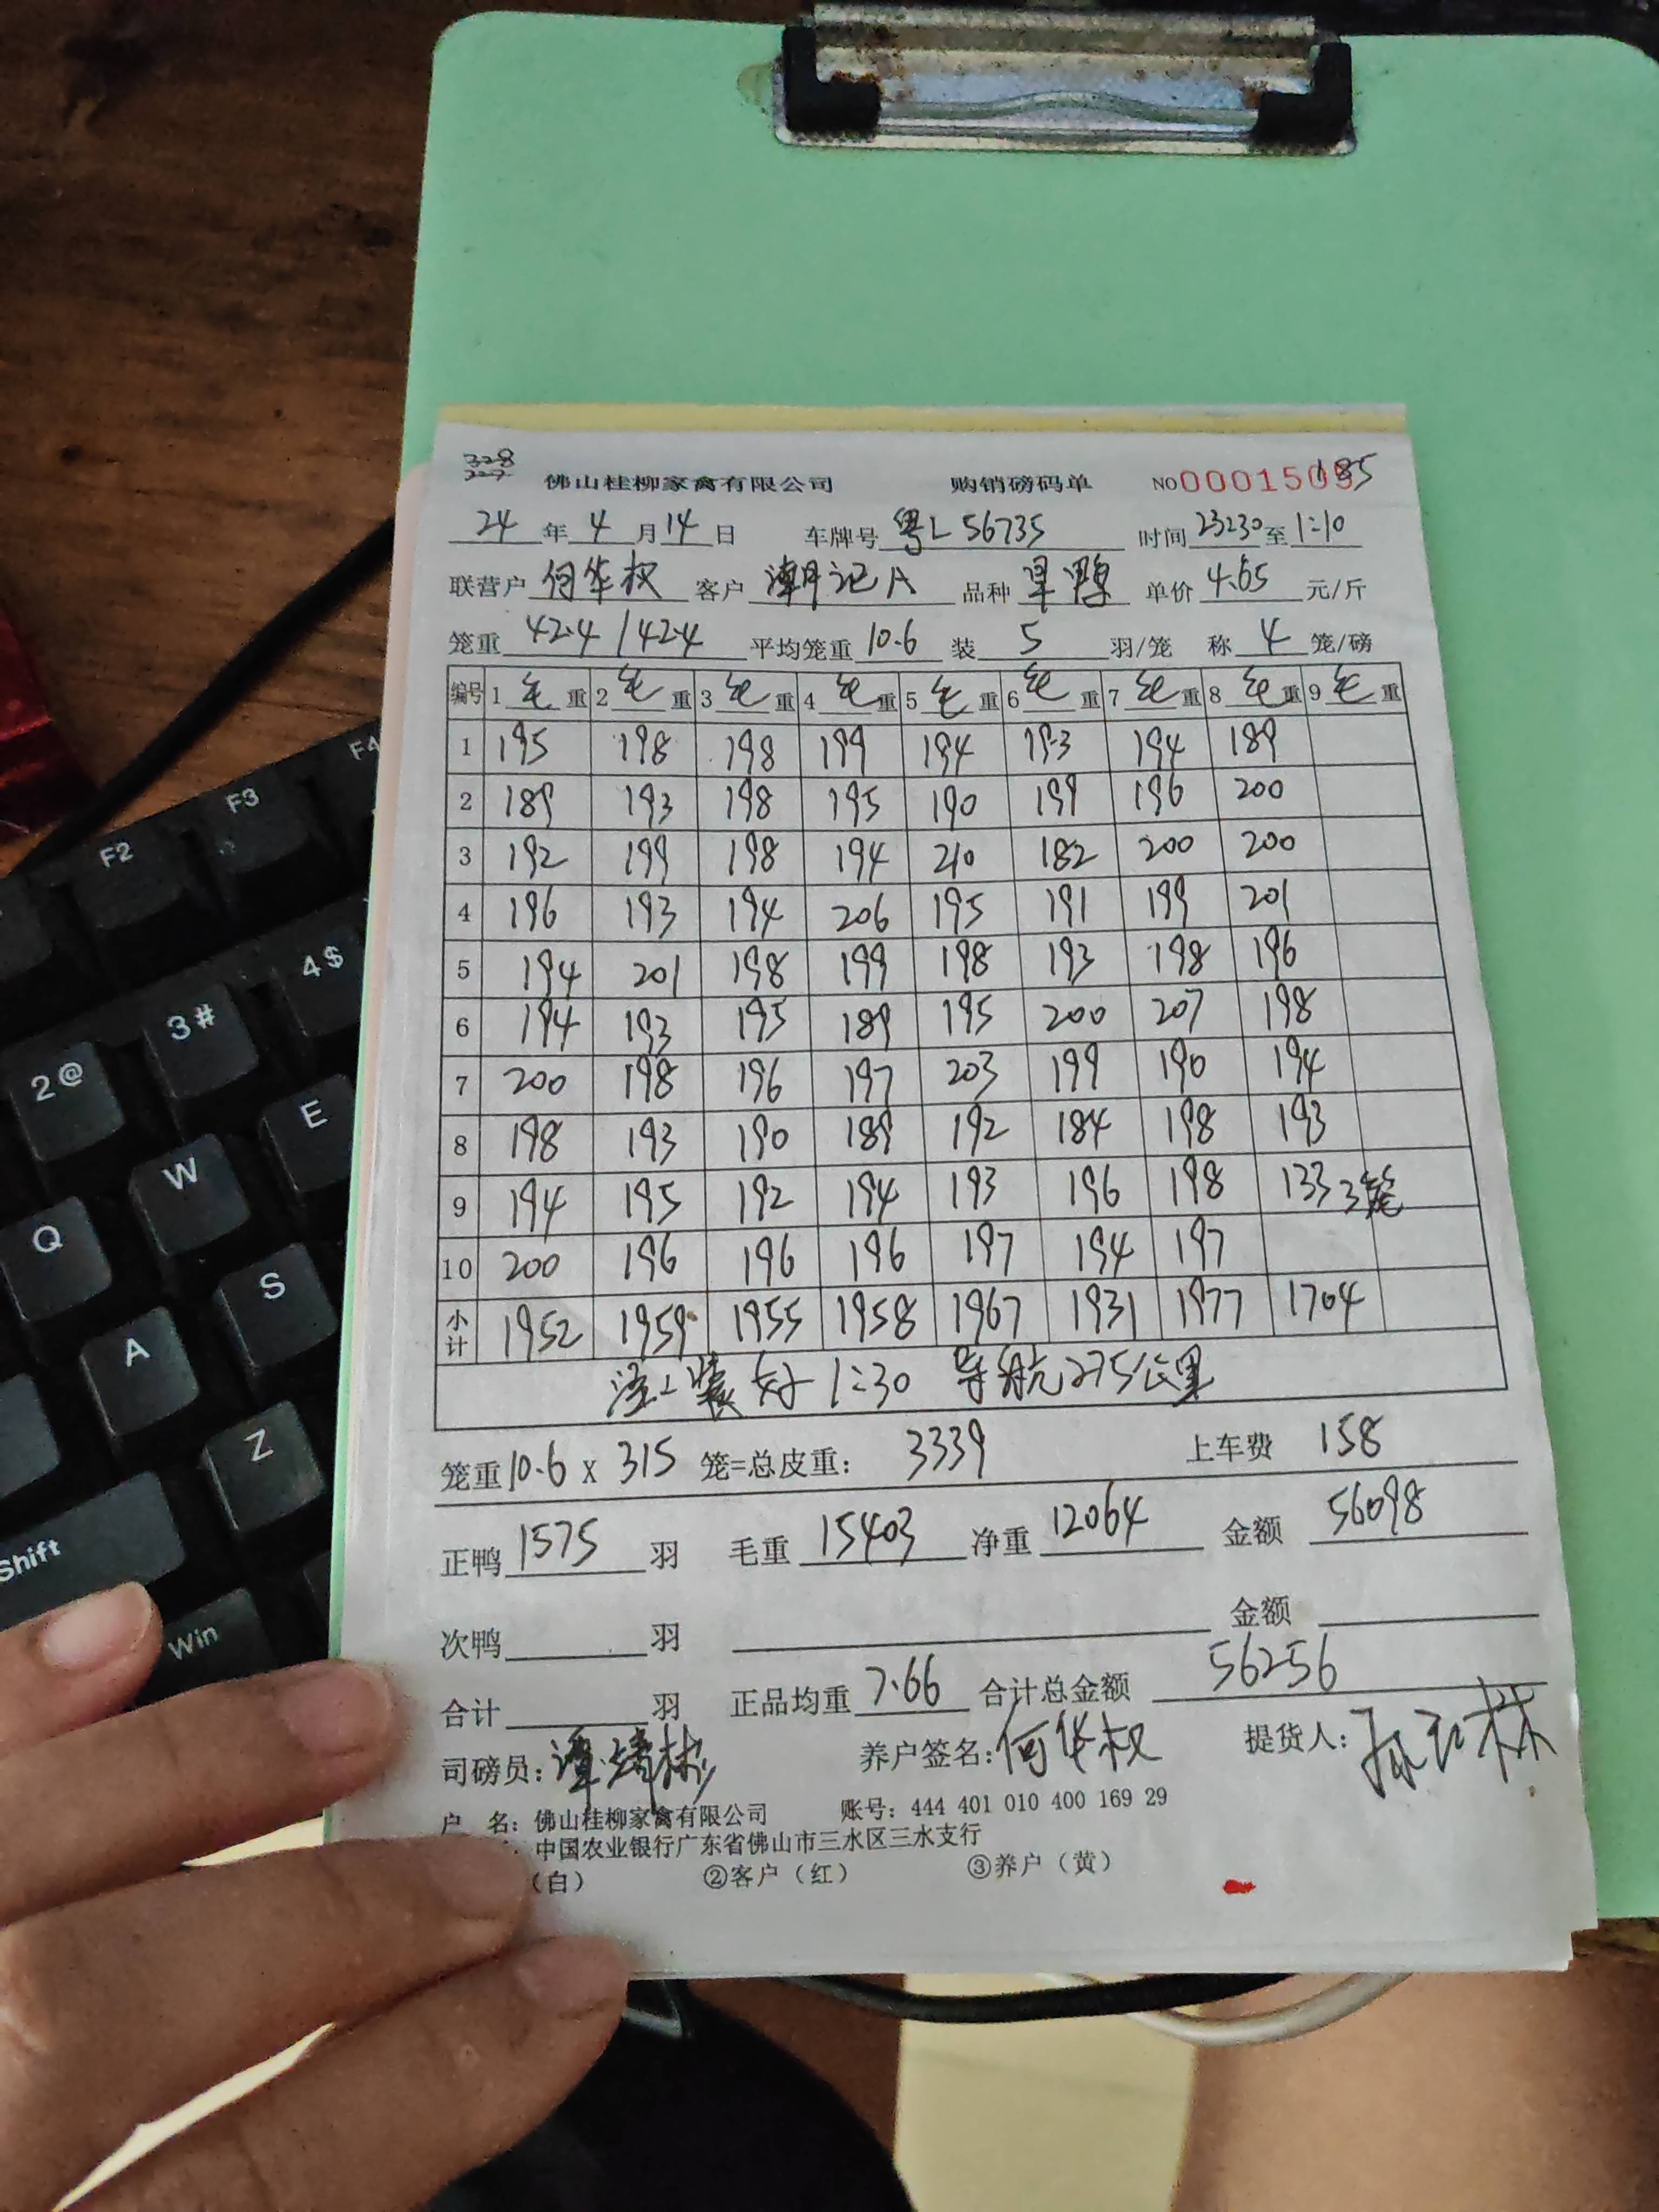 328
227
佛山桂柳家禽有限公司 购销磅码单 NO 00015 185
24 年 4 月 14 日 车牌号 粤L 56735 时间 23:30 至 1:10
联营户 何华权 客户 潮记A 品种 旱鸭 单价 4.65 元/斤
笼重 42.4 / 42.4 平均笼重 10.6 装 5 羽/笼 称 4 笼/磅
编号 1 毛 重 2 毛 重 3 毛 重 4 毛 重 5 毛 重 6 毛 重 7 毛 重 8 毛 重 9 毛 重
1 195 198 198 199 194 193 194 189
2 189 193 198 195 190 199 196 200
3 192 199 198 194 210 182 200 200
4 196 193 194 206 195 191 199 201
5 194 201 198 199 198 193 198 196
6 194 193 195 189 195 200 207 198
7 200 198 196 197 203 199 190 194
8 198 193 190 189 192 184 198 193
9 194 195 192 194 193 196 198 133 3笼
10 200 196 196 196 197 194 197
小计 1952 1959 1955 1958 1967 1931 1977 1704
注：装好 1:30 导航275公里
笼重 10.6 x 315 笼=总皮重： 3339 上车费 158
正鸭 1575 羽 毛重 15403 净重 12064 金额 56098
次鸭 羽 金额
合计 羽 正品均重 7.66 合计总金额 56256
司磅员： 谭 彬 养户签名： 何华权 提货人： 林
户 名：佛山桂柳家禽有限公司 账号：444 401 010 400 169 29
：中国农业银行广东省佛山市三水区三水支行
（白） ②客户（红） ③养户（黄）
F2
F3
F4
2 @
3 #
4 $
Q
W
E
A
S
Z
Shift
Win